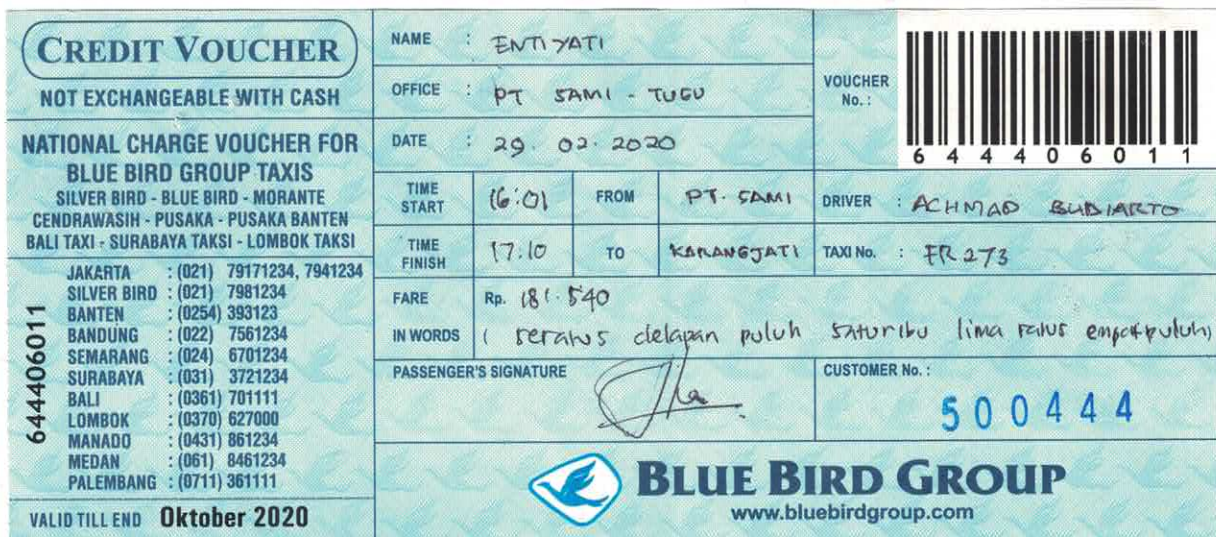 CREDIT VOUCHER
NOT EXCHANGEABLE WITH CASH
NATIONAL CHARGE VOUCHER FOR
BLUE BIRD GROUP TAXIS
SILVER BIRD - BLUE BIRD - MORANTE
CENDRAWASIH - PUSAKA - PUSAKA BANTEN
BALI TAXI - SURABAYA TAKSI - LOMBOK TAKSI
JAKARTA : (021) 79171234, 7941234
SILVER BIRD : (021) 7981234
BANTEN : (0254) 393123
BANDUNG : (022) 7561234
SEMARANG : (024) 6701234
SURABAYA : (031) 3721234
BALI : (0361) 701111
LOMBOK : (0370) 627000
MANADO : (0431) 861234
MEDAN : (061) 8461234
PALEMBANG : (0711) 361111
644406011
VALID TILL END Oktober 2020
NAME : ENTIYATI
OFFICE : PT SAMI - TUGU
DATE : 29. 02. 2020
VOUCHER No. :
6 4 4 4 0 6 0 1 1
TIME START 16:01 FROM PT. SAMI DRIVER : ACHMAD BUDIARTO
TIME FINISH 17:10 TO KARANGJATI TAXI No. : FR 273
FARE Rp. 181.540
IN WORDS ( seratus delapan puluh satu ribu lima ratus empat puluh)
PASSENGER'S SIGNATURE
CUSTOMER No. :
500444
BLUE BIRD GROUP
www.bluebirdgroup.com